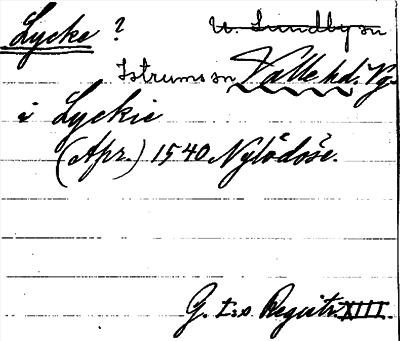 Lycke ? U. Lundby sn
Istrums sn Valle hd. Vg.
i Lyckie
(Apr.) 1540 Nylödöse.
G. I:s Registr. XIII.